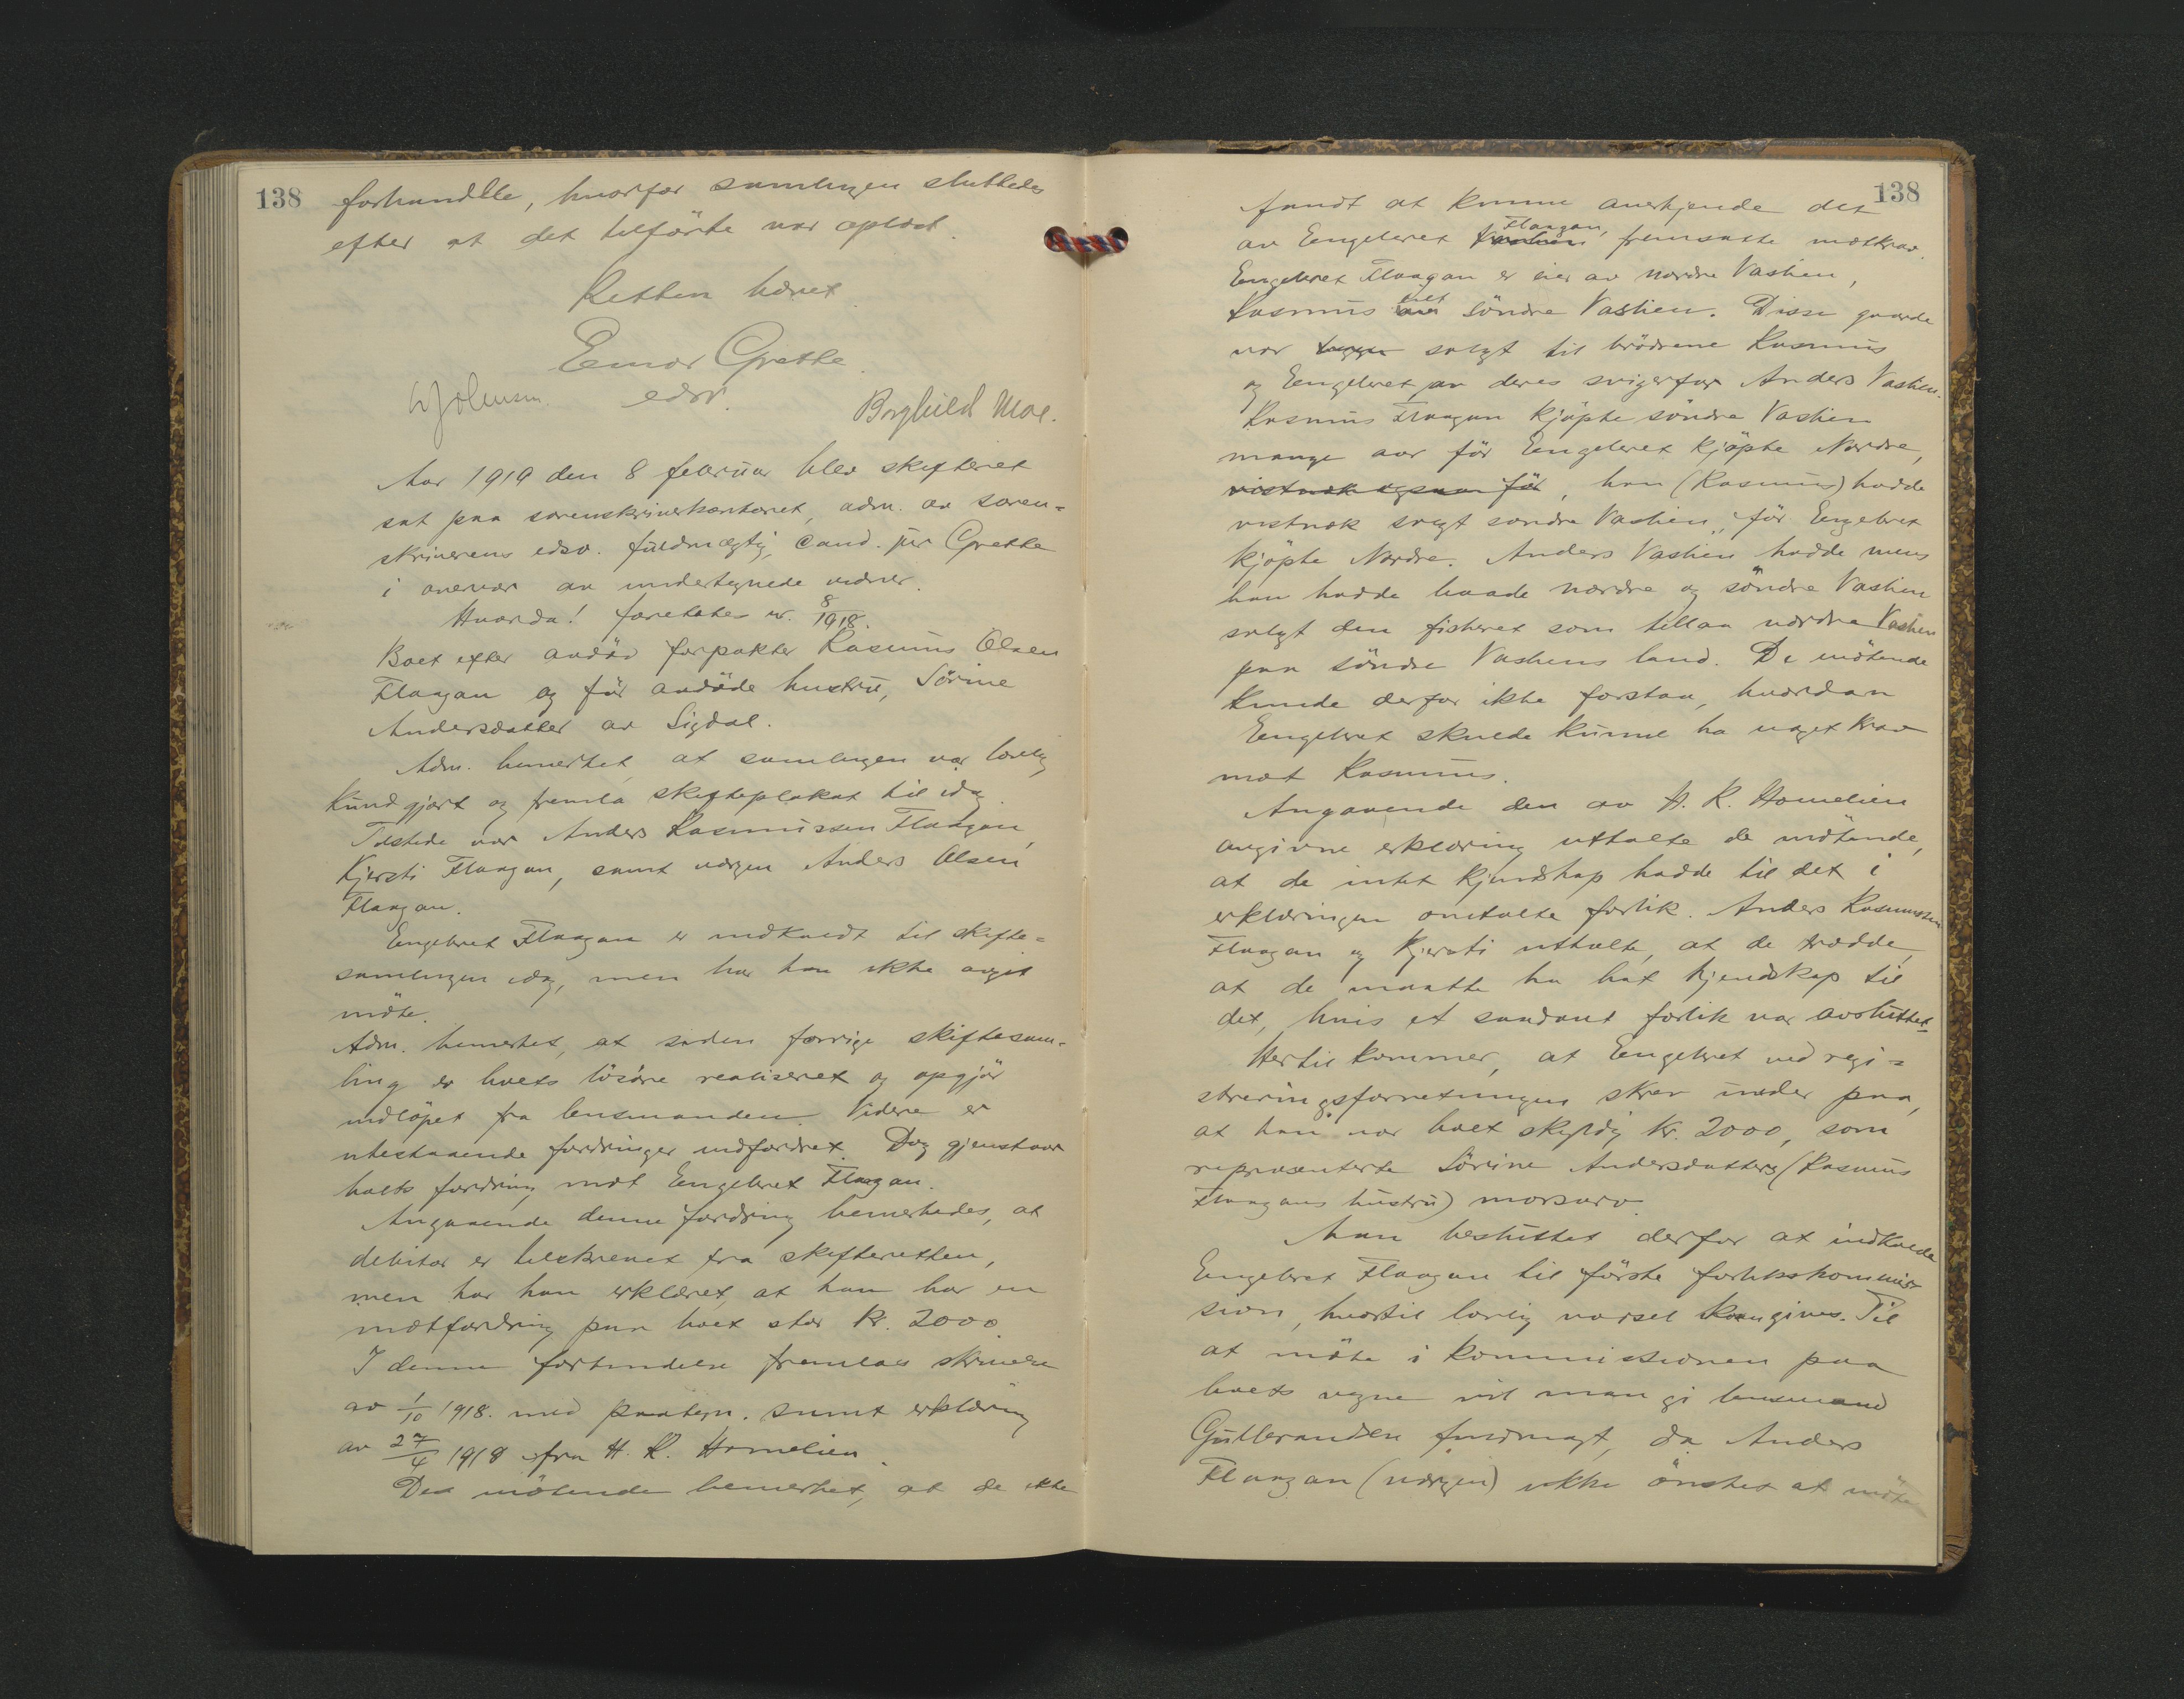 138
forhandlte, hvorfor samlingen sluttedes
efter at det tilførte var oplæst.
Retten hævet
Einar Grette
edsv.
Borghild Moe.
Aar 1919 den 8 februar blev skifteret
sat paa sorenskriverkontoret, adm. av soren-
skriverens edsv. fuldmægtig, cand. jur Grette
i overvær av undertegnede vidner.
Hvorda! foretates nr. 8/1918.
Boet efter avdøde forpakter Rasmus Olsen
Flaagan og før avdøde hustru, Sørine
Andersdatter av Sigdal.
Adm. bemerket, at samlingen var lovlig
kundgjort og fremla skifteplakat til idag.
Tilstede var Anders Rasmussen Flaagan,
Kjersti Flaagan, samt vergen Anders Olsen
Flaagan.
Engebret Flaagan er indkaldt til skifte-
samlingen idag, men har han ikke avgit
møte.
Adm. bemerket, at siden forrige skiftesam-
ling er boets løsøre realiseret og opgjør
indløpet fra lensmanden. Videre er
utestaaende fordringer indfordret. Dog gjenstaar
boets fordring mot Engebret Flaagan.
Angaaende denne fordring bemerkedes, at
debitor er tilskrevet fra skifteretten,
men har han erklæret, at han har en
motfordring paa boet stor kr. 2000.
I denne forbindelse fremlaes skrivelse
av 1/10 1918. med paategn. samt erklæring
av 27/4 1918 fra H. K. Homelien.
De møtende bemerket, at de ikke
138
fandt at kunne anerkjende det
av Engebret Flaagan, fremsatte motkrav.
Engebret Flaagan er eier av nordre Vaslien,
Rasmus eiet søndre Vaslien. Disse gaarde
var solgt til brødrene Rasmus
og Engebret av deres svigerfar Anders Vaslien.
Rasmus Flaagan kjøpte søndre Vaslien
mange aar før Engebret kjøpte Nordre,
vistnok ogsaa før, han (Rasmus) hadde
vistnok solgt søndre Vaslien, før Engebret
kjøpte Nordre. Anders Vaslien hadde mens
han hadde baade nordre og søndre Vaslien
solgt den fisheret som tillaa nordre Vaslien
paa søndre Vasliens land. De møtende
kunde derfor ikke forstaa, hvordan
Engebret skulde kunne ha noget krav
mot Rasmus.
Angaaende den av H. K. Homelien
avgivne erklæring uttalte de møtende,
at de intet kjendskap hadde til det i
erklæringen omtalte forlik. Anders Rasmussen
Flaagan og Kjersti uttalte, at de trodde,
at de maatte ha hat kjendskap til
det, hvis et saadant forlik var avsluttet.
Hertil kommer, at Engebret ved regi-
streringsforretningen skrev under paa,
at han var boet skyldig kr. 2000, som
representerte Sørine Andersdatters (Rasmus
Flaagans hustru) morsarv.
Man besluttet derfor at indkalde
Engebret Flaagan til første forlikskommis-
sion, hvortil lovlig varsel kan gives. Til
at møte i kommissionen paa
boets vegne vil man gi lensmand
Gulbrandsen fuldmagt, da Anders
Flaagan (vergen) ikke ønsket at møte